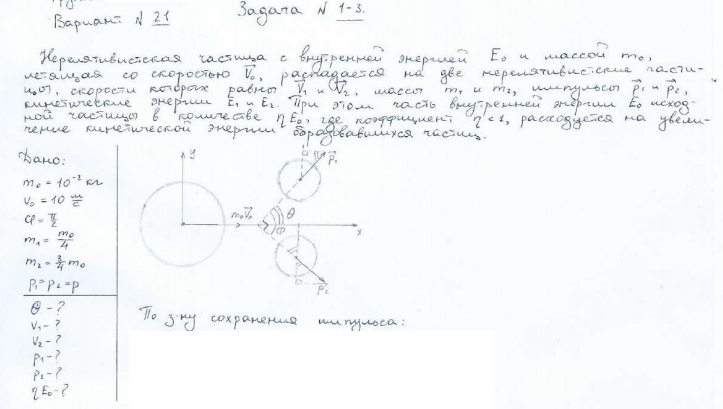 Вариант N 21
Задача N 1-3.
Нерелятивистская частица с внутренней энергией E₀ и массой m₀,
летящая со скоростью V⃗₀, распадается на две нерелятивистские части-
цы, скорости которых равны V⃗₁ и V⃗₂, массы m₁ и m₂, импульсы p⃗₁ и p⃗₂,
кинетические энергии E₁ и E₂. При этом часть внутренней энергии E₀ исход-
ной частицы в количестве ηE₀, где коэффициент η<1, расходуется на увели-
чение кинетической энергии образовавшихся частиц.
Дано:
m₀ = 10⁻² кг
v₀ = 10 м/с
φ = π/2
m₁ = m₀/4
m₂ = 3/4 m₀
p₁ = p₂ = p
θ - ?
v₁ - ?
v₂ - ?
p₁ - ?
p₂ - ?
ηE₀ - ?
y
p⃗₁
m₀V⃗₀
θ
φ
x
p⃗₂
По з-ну сохранения импульса: